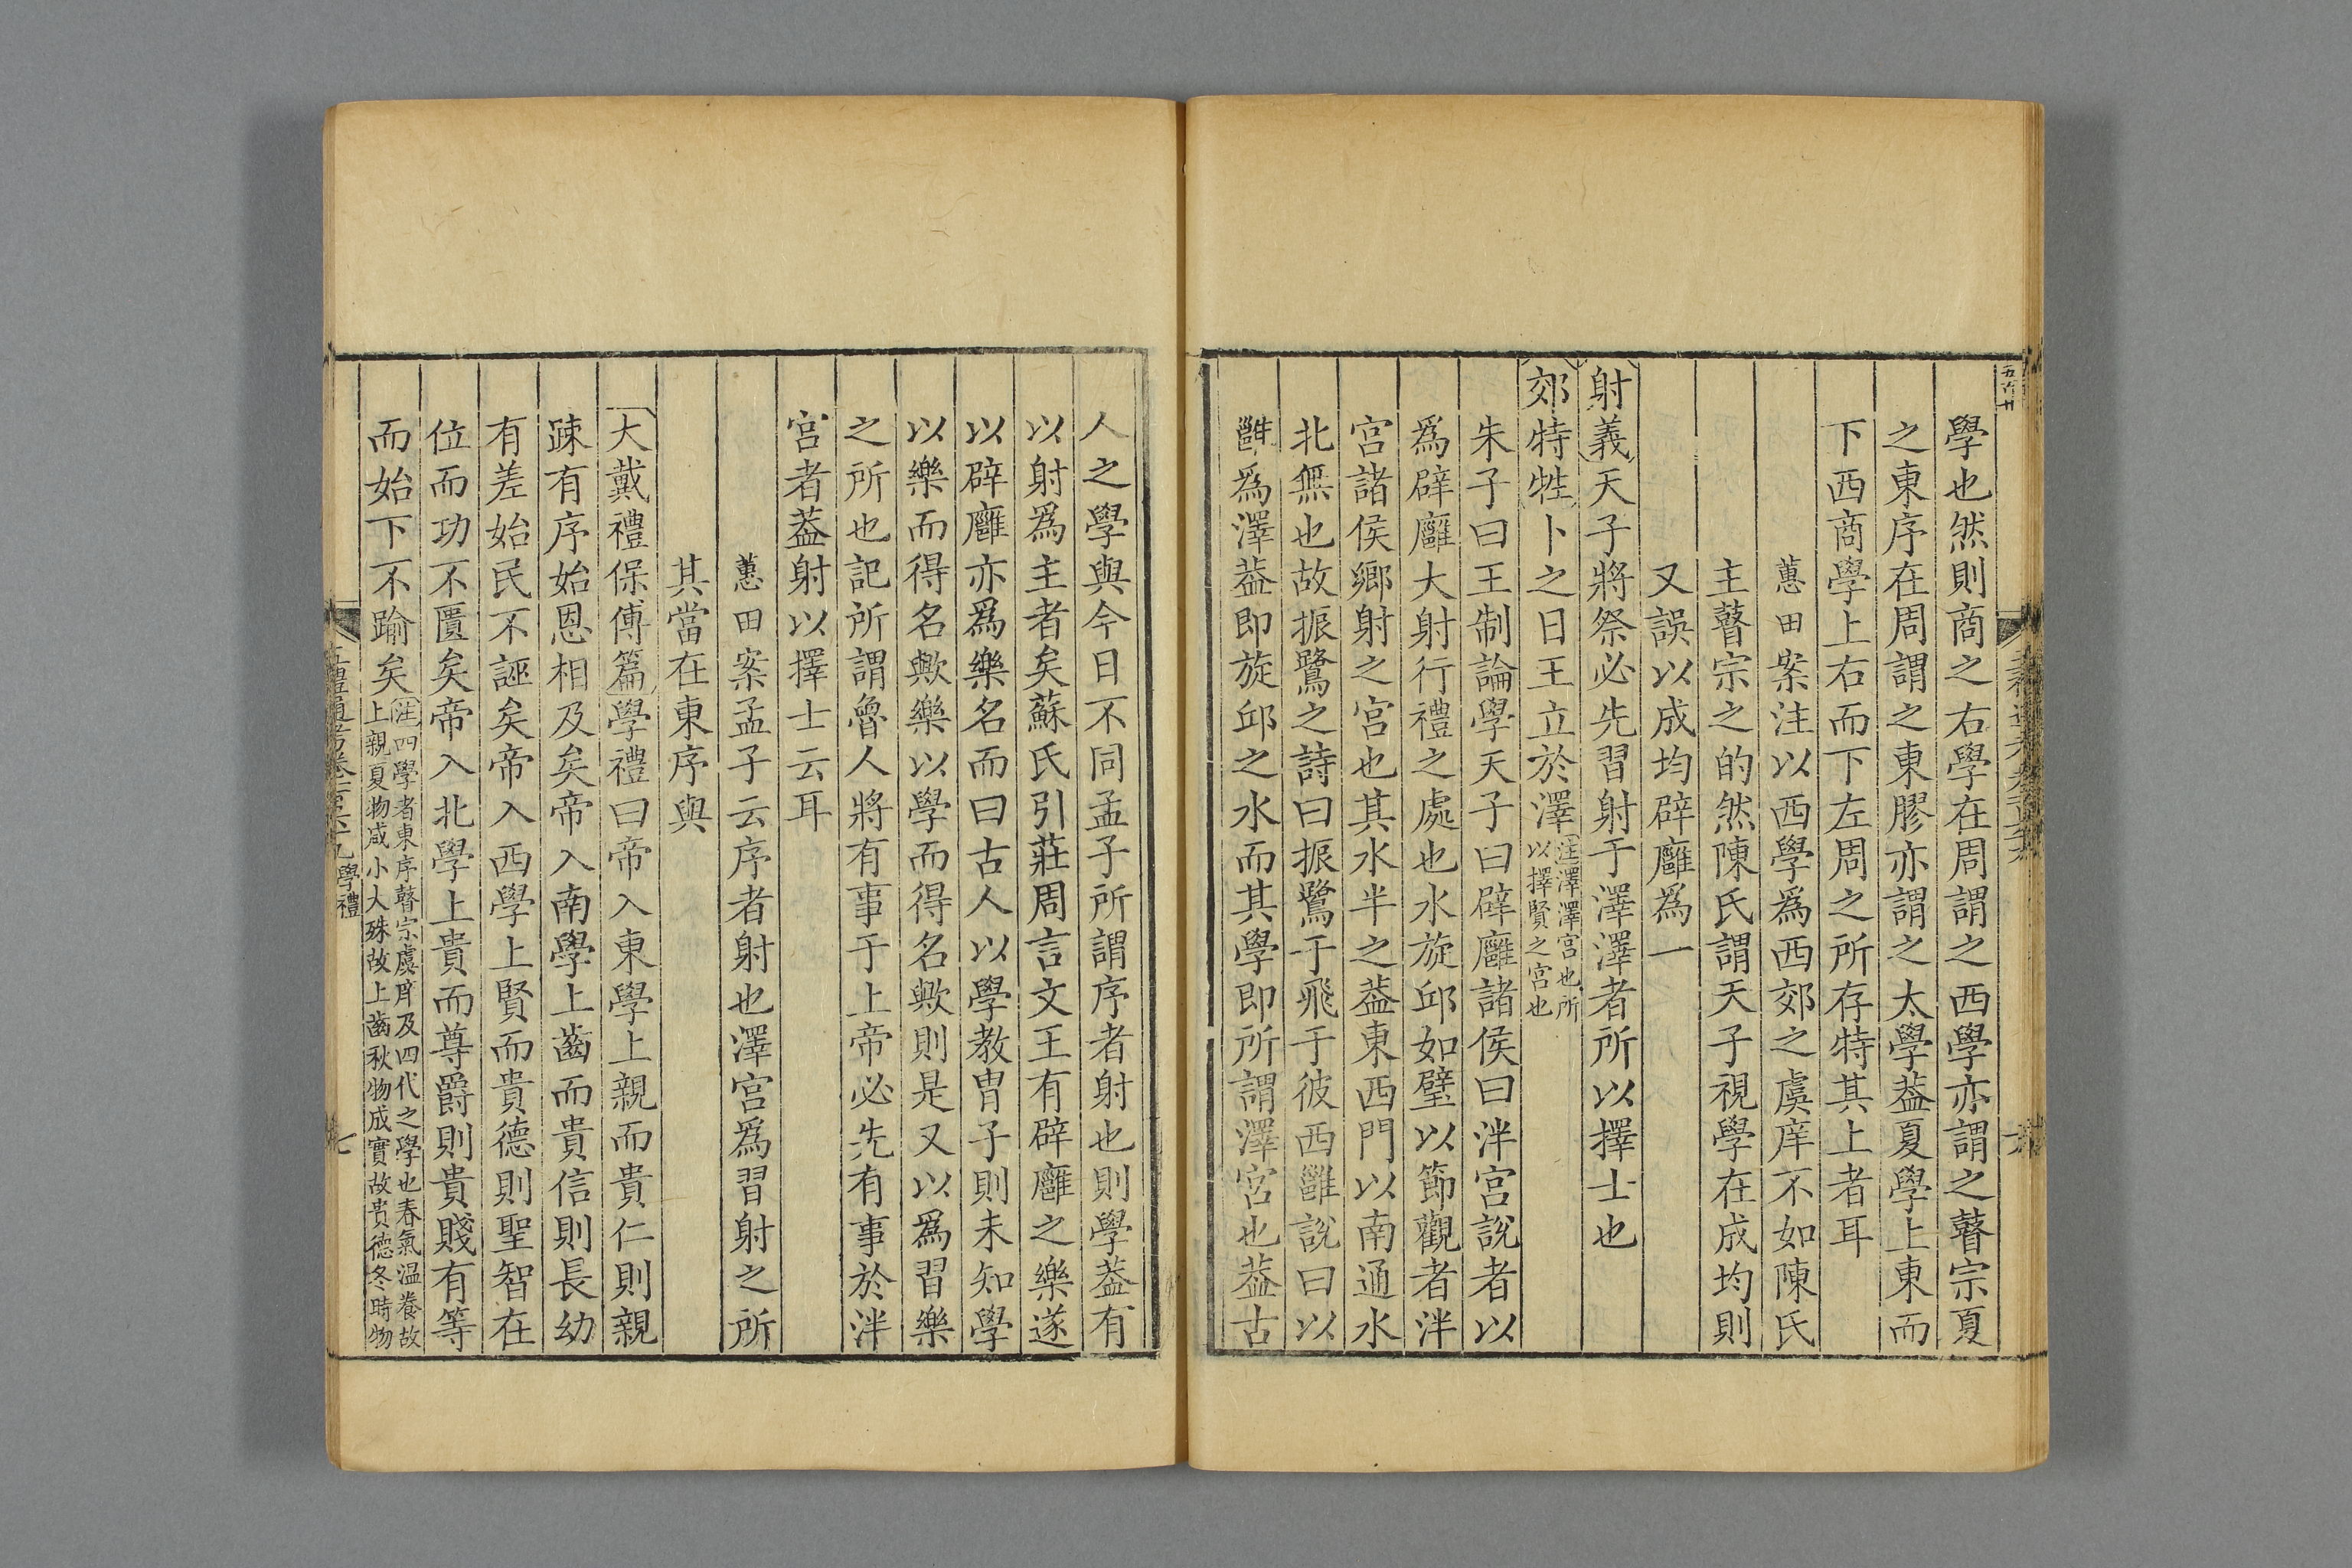 學也然則商之右學在周謂之西學亦謂之瞽宗夏
之東序在周謂之東膠亦謂之太學葢夏學上東而
下西商學上右而下左周之所存特其上者耳
蕙田案注以西學爲西郊之虞庠不如陳氏
主瞽宗之的然陳氏謂天子視學在成均則
又誤以成均辟廱爲一
射義天子將祭必先習射于澤澤者所以擇士也
郊特牲卜之日王立於澤注澤澤宮也所
以擇賢之宮也
朱子曰王制論學天子曰辟廱諸侯曰泮宮說者以
爲辟廱大射行禮之處也水旋邱如璧以節觀者泮
宮諸侯鄉射之宮也其水半之葢東西門以南通水
北無也故振鷺之詩曰振鷺于飛于彼西雝說曰以
雝爲澤葢即旋邱之水而其學即所謂澤宮也葢古
人之學與今日不同孟子所謂序者射也則學葢有
以射爲主者矣蘇氏引莊周言文王有辟廱之樂遂
以辟廱亦爲樂名而曰古人以學教胄子則未知學
以樂而得名歟樂以學而得名歟則是又以爲習樂
之所也記所謂魯人將有事于上帝必先有事於泮
宮者葢射以擇士云耳
蕙田案孟子云序者射也澤宮爲習射之所
其當在東序與
大戴禮保傅篇學禮曰帝入東學上親而貴仁則親
疎有序始恩相及矣帝入南學上齒而貴信則長幼
有差始民不誣矣帝入西學上賢而貴德則聖智在
位而功不匱矣帝入北學上貴而尊爵則貴賤有等
而始下不踰矣注四學者東序瞽宗虞庠及四代之學也春氣溫養故
上親夏物咸小大殊故上齒秋物成實故貴德冬時物
五禮通考卷一百六十九學禮
七